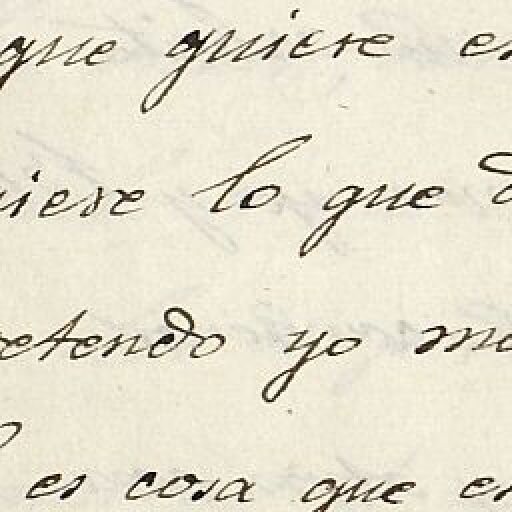 que quiere en
uiere lo que d
etendo yo me
es cosa que en